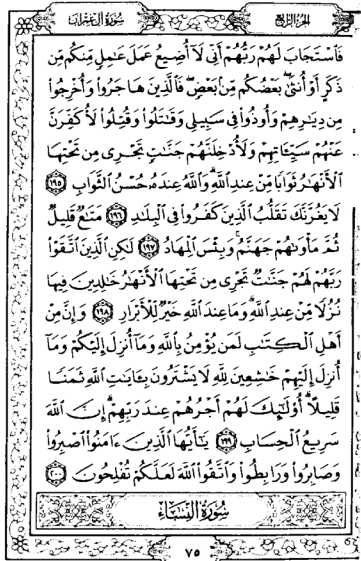 الجزء الرابع
سورة آل عمران
فَٱسْتَجَابَ لَهُمْ رَبُّهُمْ أَنِّى لَآ أُضِيعُ عَمَلَ عَٰمِلٍ مِّنكُم مِّن
ذَكَرٍ أَوْ أُنثَىٰ بَعْضُكُم مِّنۢ بَعْضٍ فَٱلَّذِينَ هَاجَرُوا۟ وَأُخْرِجُوا۟
مِن دِيَٰرِهِمْ وَأُوذُوا۟ فِى سَبِيلِى وَقَٰتَلُوا۟ وَقُتِلُوا۟ لَأُكَفِّرَنَّ
عَنْهُمْ سَيِّـَٔاتِهِمْ وَلَأُدْخِلَنَّهُمْ جَنَّٰتٍ تَجْرِى مِن تَحْتِهَا
ٱلْأَنْهَٰرُ ثَوَابًا مِّنْ عِندِ ٱللَّهِ وَٱللَّهُ عِندَهُۥ حُسْنُ ٱلثَّوَابِ ١٩٥
لَا يَغُرَّنَّكَ تَقَلُّبُ ٱلَّذِينَ كَفَرُوا۟ فِى ٱلْبِلَٰدِ ١٩٦ مَتَٰعٌ قَلِيلٌ
ثُمَّ مَأْوَىٰهُمْ جَهَنَّمُ وَبِئْسَ ٱلْمِهَادُ ١٩٧ لَٰكِنِ ٱلَّذِينَ ٱتَّقَوْا۟
رَبَّهُمْ لَهُمْ جَنَّٰتٌ تَجْرِى مِن تَحْتِهَا ٱلْأَنْهَٰرُ خَٰلِدِينَ فِيهَا
نُزُلًا مِّنْ عِندِ ٱللَّهِ وَمَا عِندَ ٱللَّهِ خَيْرٌ لِّلْأَبْرَارِ ١٩٨ وَإِنَّ مِنْ
أَهْلِ ٱلْكِتَٰبِ لَمَن يُؤْمِنُ بِٱللَّهِ وَمَآ أُنزِلَ إِلَيْكُمْ وَمَآ
أُنزِلَ إِلَيْهِمْ خَٰشِعِينَ لِلَّهِ لَا يَشْتَرُونَ بِـَٔايَٰتِ ٱللَّهِ ثَمَنًا
قَلِيلًا أُو۟لَٰٓئِكَ لَهُمْ أَجْرُهُمْ عِندَ رَبِّهِمْ إِنَّ ٱللَّهَ
سَرِيعُ ٱلْحِسَابِ ١٩٩ يَٰٓأَيُّهَا ٱلَّذِينَ ءَامَنُوا۟ ٱصْبِرُوا۟
وَصَابِرُوا۟ وَرَابِطُوا۟ وَٱتَّقُوا۟ ٱللَّهَ لَعَلَّكُمْ تُفْلِحُونَ ٢٠٠
سُورَةُ النِّسَاءِ
٧٥